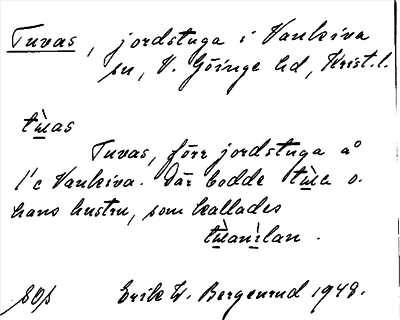 Tuvas, jordstuga i Vankiva
sn, V. Göinge hd, Krist. l.
Tuvas, förr jordstuga å
1/2 Vankiva. Där bodde o.
hans hustru, som kallades
Erik W. Bergenrud 1948.